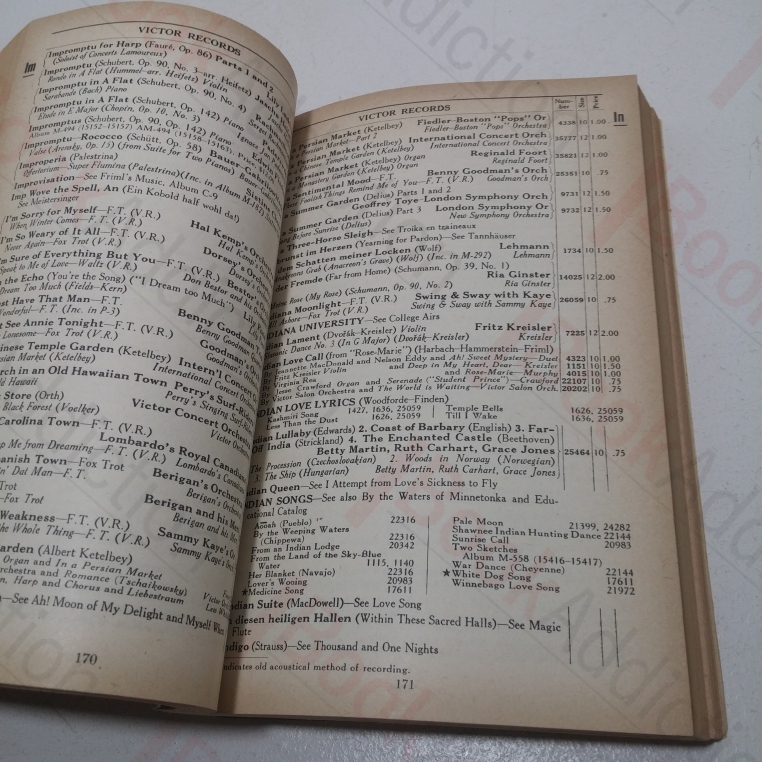 VICTOR RECORDS
Im
Impromptu for Harp (Fauré, Op. 86) Parts 1 and 2
(Soloist of Concerts Lamoureux)
Impromptu (Schubert, Op. 90, No. 3—arr. Heifetz)
Rondo in A Flat (Hummel-arr. Heifetz) Violin
Impromptu in A Flat (Schubert, Op. 90, No. 4)
Sarabande (Bach) Piano
Impromptu in A Flat (Schubert, Op. 142) Piano
Etude in E Major (Chopin, Op. 10, No. 3)
Impromptus (Schubert, Op. 90, Op. 142) Piano
Album M-494 (15152-15157) AM-494 (15158-
Impromptu—Rococco (Schütt, Op. 58) Bauer
Valse (Arensky, Op. 15) (from Suite for Two Pianos)
Improperia (Palestrina)
Offertorium—Super Flumina (Palestrina) (Inc. in Album M-
Improvisation—See Friml's Music, Album C-9
Imp Rove the Spell, An (Ein Kobold half wohl da!)
See Meistersinger
I'm Sorry for Myself—F.T. (V.R.)
When Winter Comes—F.T. (V.R.) Hal Kemp's
I'm So Weary of It All—F.T. (V.R.)
Never Again—Fox Trot (V.R.) Dorsey's
I'm Sure of Everything But You—F.T. (V.R.)
Speak to Me of Love—Waltz (V.R.) Don Bestor and
the Echo (You're the Song) ("I Dream too Much")
Dream Too Much (Fields-Kern)
st Have That Man—F.T.
onderful—F.T. (Inc. in P-3) Benny Goodman
t See Annie Tonight—F.T. (V.R.)
Lonesome—Fox Trot (V.R.) Goodman's
inese Temple Garden (Ketelbey) Intern'l Concert
rsian Market (Ketelbey) International Concert
rch in an Old Hawaiian Town Perry's Surf-
d Hawaii Perry's Singing Surf-
e Store (Orth)
Black Forest (Voelker) Victor Concert
Carolina Town—F.T. (V.R.)
p Me from Dreaming—F.T. (V.R.) Lombardo's Royal Canadians
panish Town—Fox Trot
n' Dat Man—F.T. Berigan's Orchestra
Trot
Fox Trot Berigan and his Men
Weakness—F.T. (V.R.)
the Whole Thing—F.T. (V.R.) Sammy Kaye's
arden (Albert Ketelbey)
Organ and In a Persian Market
rchestra and Romance (Tschaikowsky)
n, Harp and Chorus and Liebestraum
—See Ah! Moon of My Delight and Myself When
170
VICTOR RECORDS
Number Size Price
In
a Persian Market (Ketelbey) Fiedler-Boston "Pops" Or
Persian Market—Part 2 Fiedler-Boston "Pops" Orchestra 4338 10 1.00
a Persian Market (Ketelbey) International Concert Orch
Chinese Temple Garden (Ketelbey) International Concert Orchestra 35777 12 1.00
a Persian Market (Ketelbey) Organ Reginald Foort
Monastery Garden (Ketelbey) Organ Reginald Foort 35823 12 1.00
a Sentimental Mood—F.T. Benny Goodman's Orch
Foolish Things Remind Me of You—F.T. (V.R.) Goodman's Orch 25351 10 .75
a Summer Garden (Delius) Parts 1 and 2
Geoffrey Toye-London Symphony Orch 9731 12 1.50
a Summer Garden (Delius) Part 3 London Symphony Or
Song Before Sunrise (Delius) New Symphony Orchestra 9732 12 1.50
Three-Horse Sleigh—See Troika en traineaux
brunst im Herzen (Yearning for Pardon)—See Tannhäuser
dem Schatten meiner Locken (Wolf) Lehmann
Anakreons Grab (Anacreon's Grave) (Wolf) (Inc. in M-292) Lehmann 1734 10 1.50
der Fremde (Far from Home) (Schumann, Op. 39, No. 1)
Ria Ginster
Rose (My Rose) (Schumann, Op. 90, No. 2) Ria Ginster 14025 12 2.00
diana Moonlight—F.T. (V.R.) Swing & Sway with Kaye
Ashore—Fox Trot (V.R.) Swing & Sway with Sammy Kaye 26059 10 .75
DIANA UNIVERSITY—See College Airs
dian Lament (Dvořák-Kreisler) Violin Fritz Kreisler
Slavonic Dance No. 3 (In G Major) (Dvořák-Kreisler) Kreisler 7225 12 2.00
dian Love Call (from "Rose-Marie") (Harbach-Hammerstein-Friml)
By Jeannette MacDonald and Nelson Eddy and Ah! Sweet Mystery—Duet 4323 10 1.00
By Fritz Kreisler Violin and Deep in My Heart, Dear—Kreisler 1151 10 1.50
By Virginia Rea and Rose-Marie—Murphy 4015 10 1.00
By Jesse Crawford Organ and Serenade ("Student Prince")—Crawford 22107 10 .75
By Victor Salon Orchestra and The World is Waiting—Victor Salon Orch. 20202 10 .75
DIAN LOVE LYRICS (Woodforde-Finden)
Kashmiri Song 1427, 1636, 25059
Less Than the Dust 1626, 25059
Temple Bells 1626, 25059
Till I Wake 1636, 25059
dian Lullaby (Edwards) 2. Coast of Barbary (English) 3. Far-
Off India (Strickland) 4. The Enchanted Castle (Beethoven)
Betty Martin, Ruth Carhart, Grace Jones
The Procession (Czechoslovakian) 2. Woods in Norway (Norwegian)
3. The Ship (Hungarian) Betty Martin, Ruth Carhart, Grace Jones 25464 10 .75
dian Queen—See I Attempt from Love's Sickness to Fly
DIAN SONGS—See also By the Waters of Minnetonka and Edu-
cational Catalog
Aooah (Pueblo) 22316
By the Weeping Waters
(Chippewa) 22316
From an Indian Lodge 20342
From the Land of the Sky-Blue
Water 1115, 1140
Her Blanket (Navajo) 22316
Lover's Wooing 20983
★Medicine Song 17611
Pale Moon 21399, 24282
Shawnee Indian Hunting Dance 22144
Sunrise Call 20983
Two Sketches
Album M-558 (15416-15417)
War Dance (Cheyenne) 22144
★White Dog Song 17611
Winnebago Love Song 21972
dian Suite (MacDowell)—See Love Song
diesen heiligen Hallen (Within These Sacred Halls)—See Magic
Flute
ndigo (Strauss)—See Thousand and One Nights
indicates old acoustical method of recording.
171